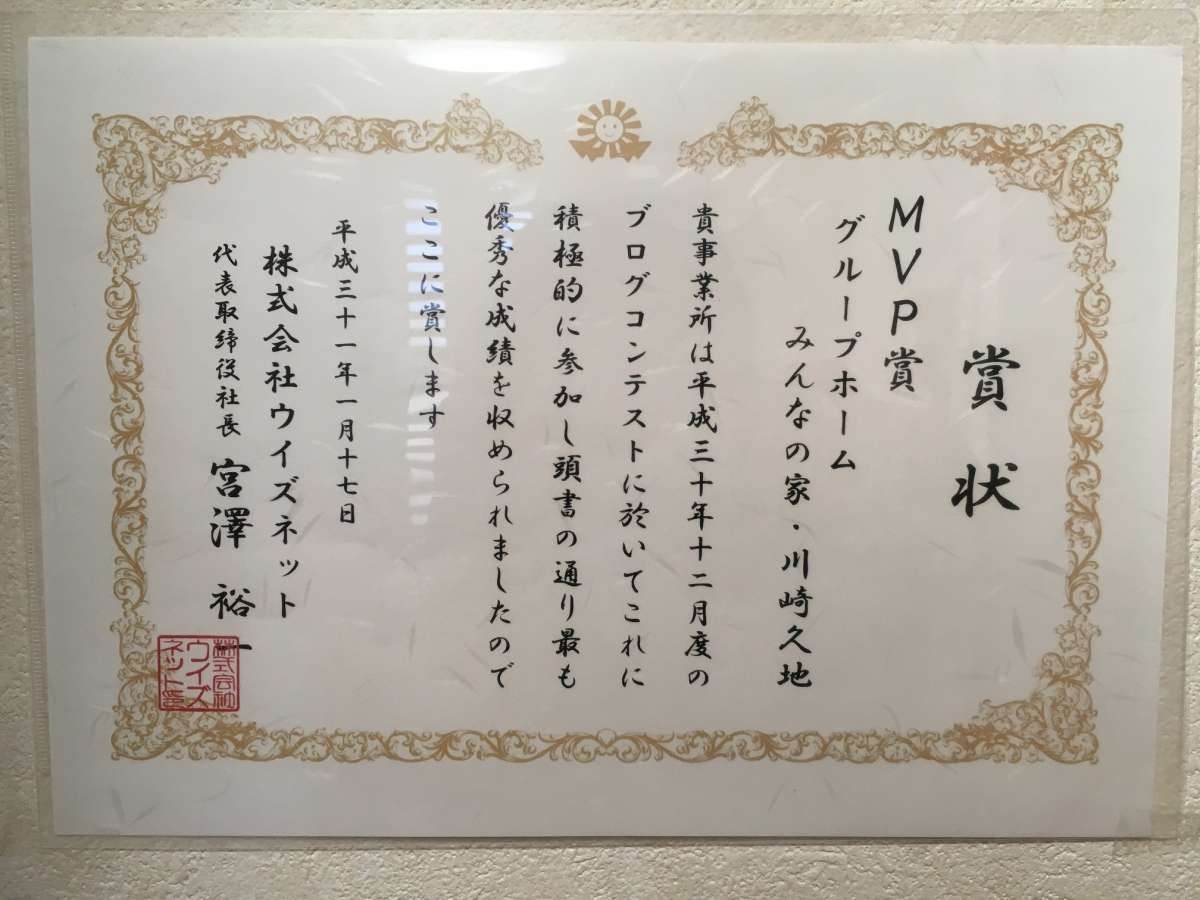 賞状
MVP賞
グループホーム
みんなの家・川崎久地
貴事業所は平成三十年十二月度の
ブログコンテストに於いてこれに
積極的に参加し頭書の通り最も
優秀な成績を収められましたので
ここに賞します
平成三十一年一月十七日
株式会社ウイズネット
代表取締役社長 宮澤 裕一
株式会社
ウイズ
ネット之印